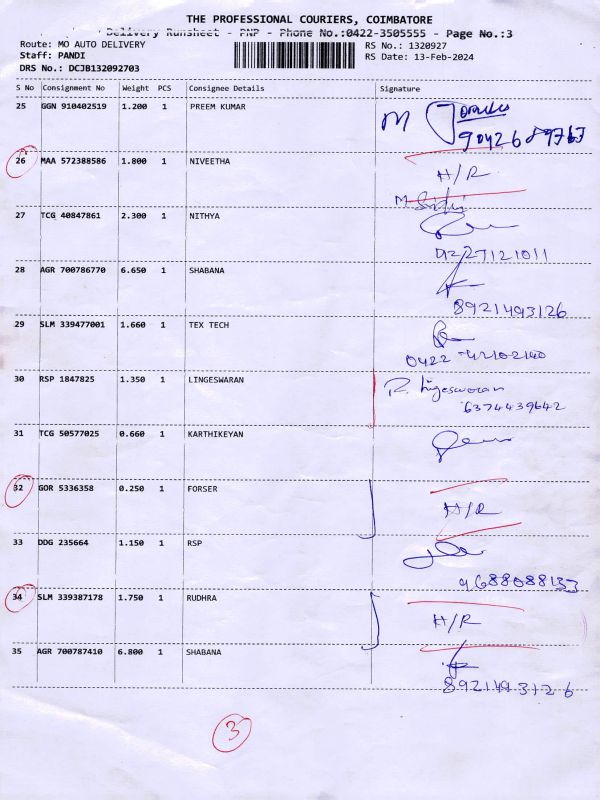 THE PROFESSIONAL COURIERS, COIMBATORE
Delivery Runsheet - PNP - Phone No.:0422-3505555 - Page No.:3
Route: MO AUTO DELIVERY RS No.: 1320927
Staff: PANDI RS Date: 13-Feb-2024
DRS No.: DCJB132092703
S No Consignment No Weight PCS Consignee Details Signature
25 GGN 910402519 1.200 1 PREEM KUMAR M
26 MAA 572388586 1.800 1 NIVEETHA H/R
27 TCG 40847861 2.300 1 NITHYA
28 AGR 700786770 6.650 1 SHABANA
8921493126
29 SLM 339477001 1.660 1 TEX TECH
0422-42102140
30 RSP 1847825 1.350 1 LINGESWARAN R. lingesworan
6374439642
31 TCG 50577025 0.660 1 KARTHIKEYAN
32 GOR 5336358 0.250 1 FORSER
H/R
33 DDG 235664 1.150 1 RSP
9688088133
34 SLM 339387178 1.750 1 RUDHRA
H/R
35 AGR 700787410 6.800 1 SHABANA
8921493126
3